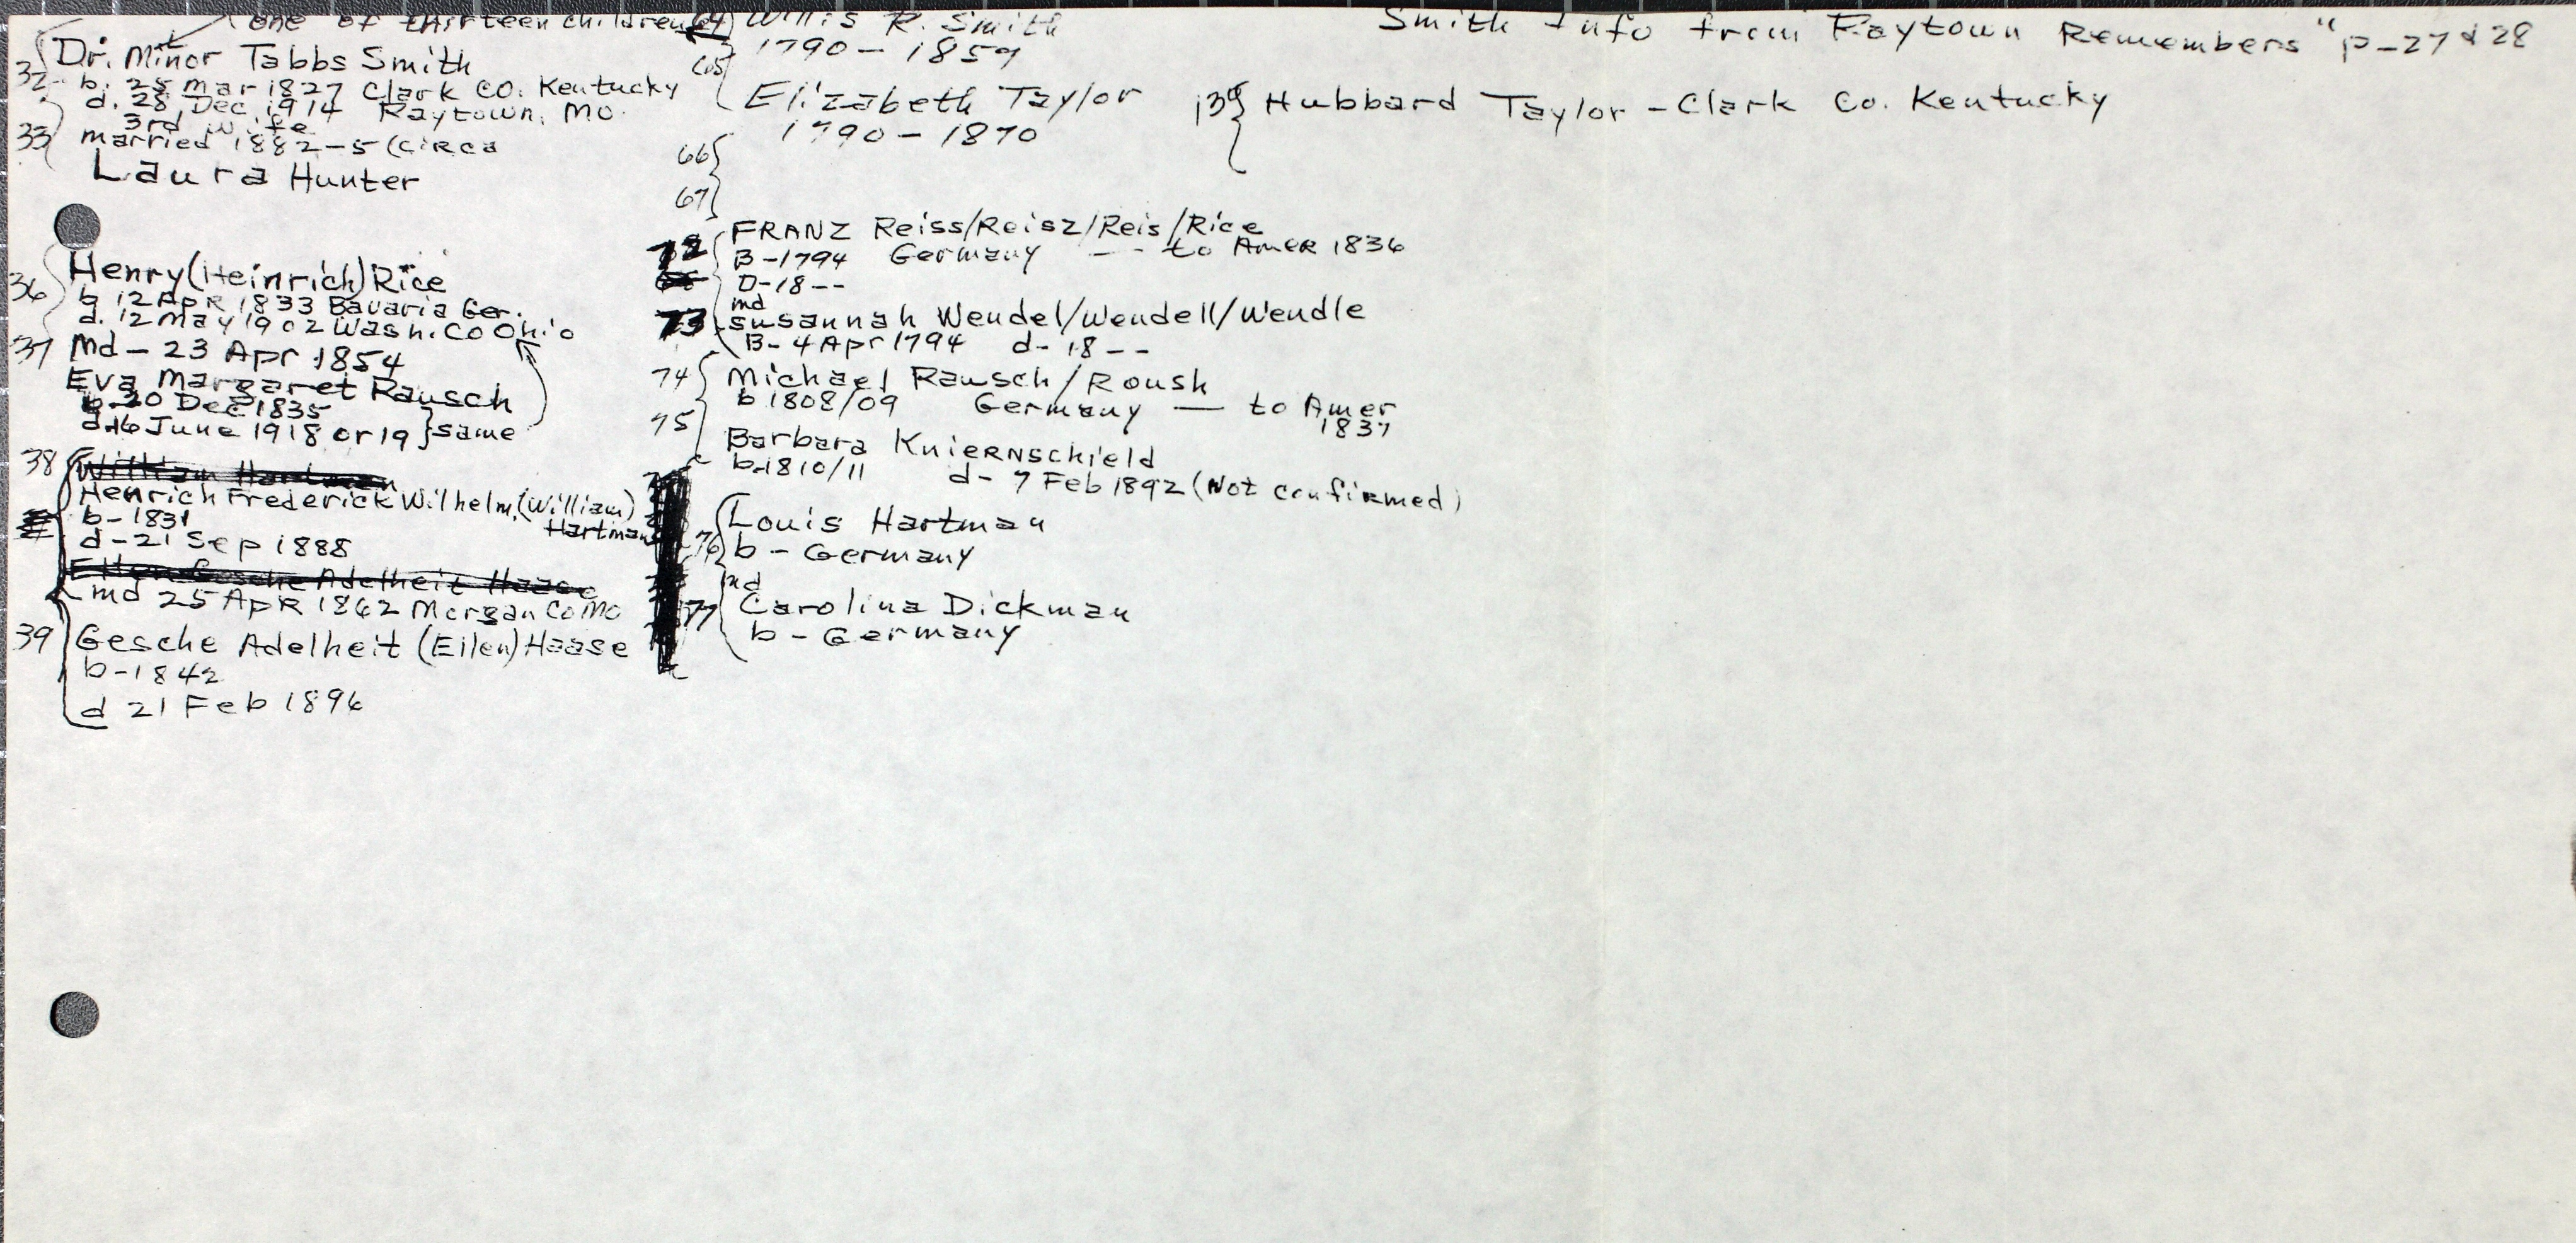 (one of thirteen children
32 Dr. Minor Tabbs Smith
b. 25 Mar 1827 Clark Co. Kentucky
d. 28 Dec. 1914 Raytown, Mo.
3rd wife
33 married 1882-5 (circa
Laura Hunter
36 Henry (Heinrich) Rice
b 12 Apr 1833 Bavaria Ger.
d. 12 May 1902 Wash. Co Ohio
37 Md - 23 Apr 1854
Eva Margaret Rausch
b-20 Dec 1835
d-16 June 1918 or 19 } same
38 William Hartman
Henrich Frederick Wilhelm, (William)
Hartman
b-1831
d-21 Sep 1888
Ellen Gesche Adelheit Haase
md 25 Apr 1862 Morgan Co Mo
39 Gesche Adelheit (Eilen) Haase
b-1842
d 21 Feb 1896
64 Willis R. Smith
1790 - 1859
65
Elizabeth Taylor
1790 - 1870
66
67
72 FRANZ Reiss/Reisz/Reis/Rice
B-1794 Germany -- to Amer 1836
D-18--
md
73 Susannah Wendel/Wendell/Wendle
B-4 Apr 1794 d-18--
74 Michael Rausch/Roush
b 1808/09 Germany — to Amer
1837
75 Barbara Kniernschield
b-1810/11 d- 7 Feb 1892 (Not confirmed)
76 Louis Hartman
b - Germany
md
77 Carolina Dickman
b - Germany
Smith Info from Raytown Remembers" p-27 & 28
130 Hubbard Taylor - Clark Co. Kentucky